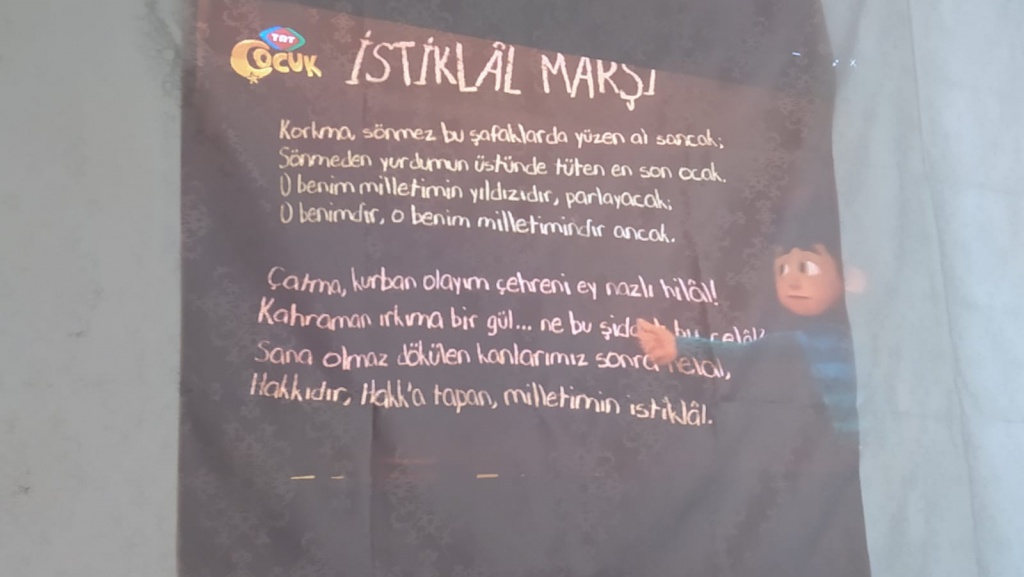 TRT
ÇOCUK
İSTİKLÂL MARŞI
Korkma, sönmez bu şafaklarda yüzen al sancak;
Sönmeden yurdumun üstünde tüten en son ocak.
O benim milletimin yıldızıdır, parlayacak;
O benimdir, o benim milletimindir ancak.
Çatma, kurban olayım çehreni ey nazlı hilâl!
Kahraman ırkıma bir gül... ne bu bu celâl?
Sana olmaz dökülen kanlarımız sonra helal,
Hakkıdır, Hakk'a tapan, milletimin istiklâl.